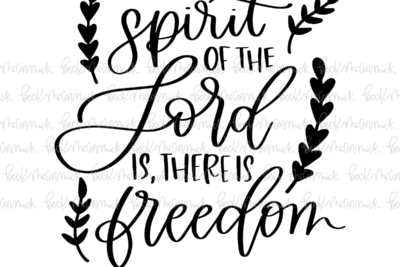 spirit
OF THE
Lord
IS, THERE IS
freedom